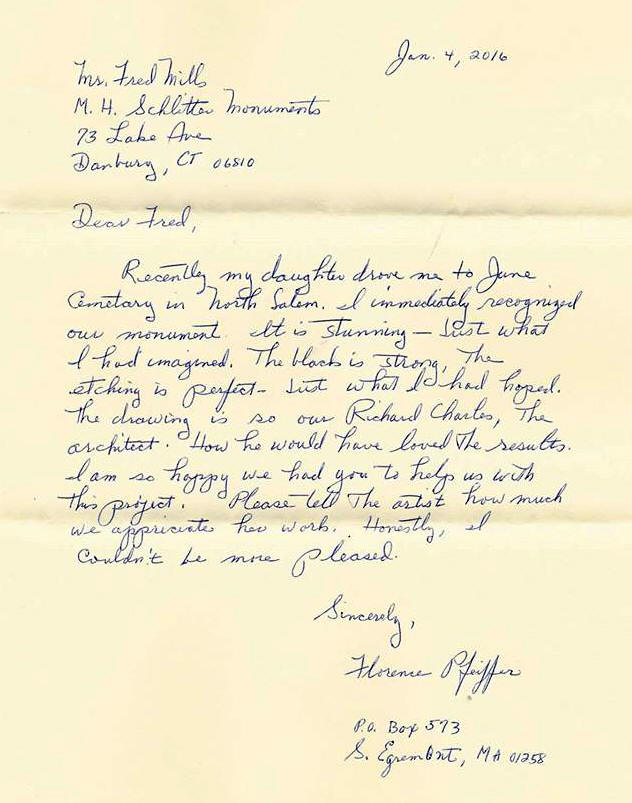 Jan. 4, 2016
Mr. Fred Mills
M. H. Schlitter Monuments
73 Lake Ave
Danbury, CT 06810
Dear Fred,
Recently my daughter drove me to June
Cemetary in North Salem. I immediately recognized
our monument. It is stunning — Just what
I had imagined. The black is strong, The
etching is perfect – Just what I had hoped.
The drawing is so our Richard Charles, The
architect. How he would have loved The results.
I am so happy we had you to help us with
this project. Please tell The artist how much
we appriciate her work. Honestly, I
Couldn't be more pleased.
Sincerely,
Florence Pfeiffer
P.O. Box 573
S. Egremont, MA 01258